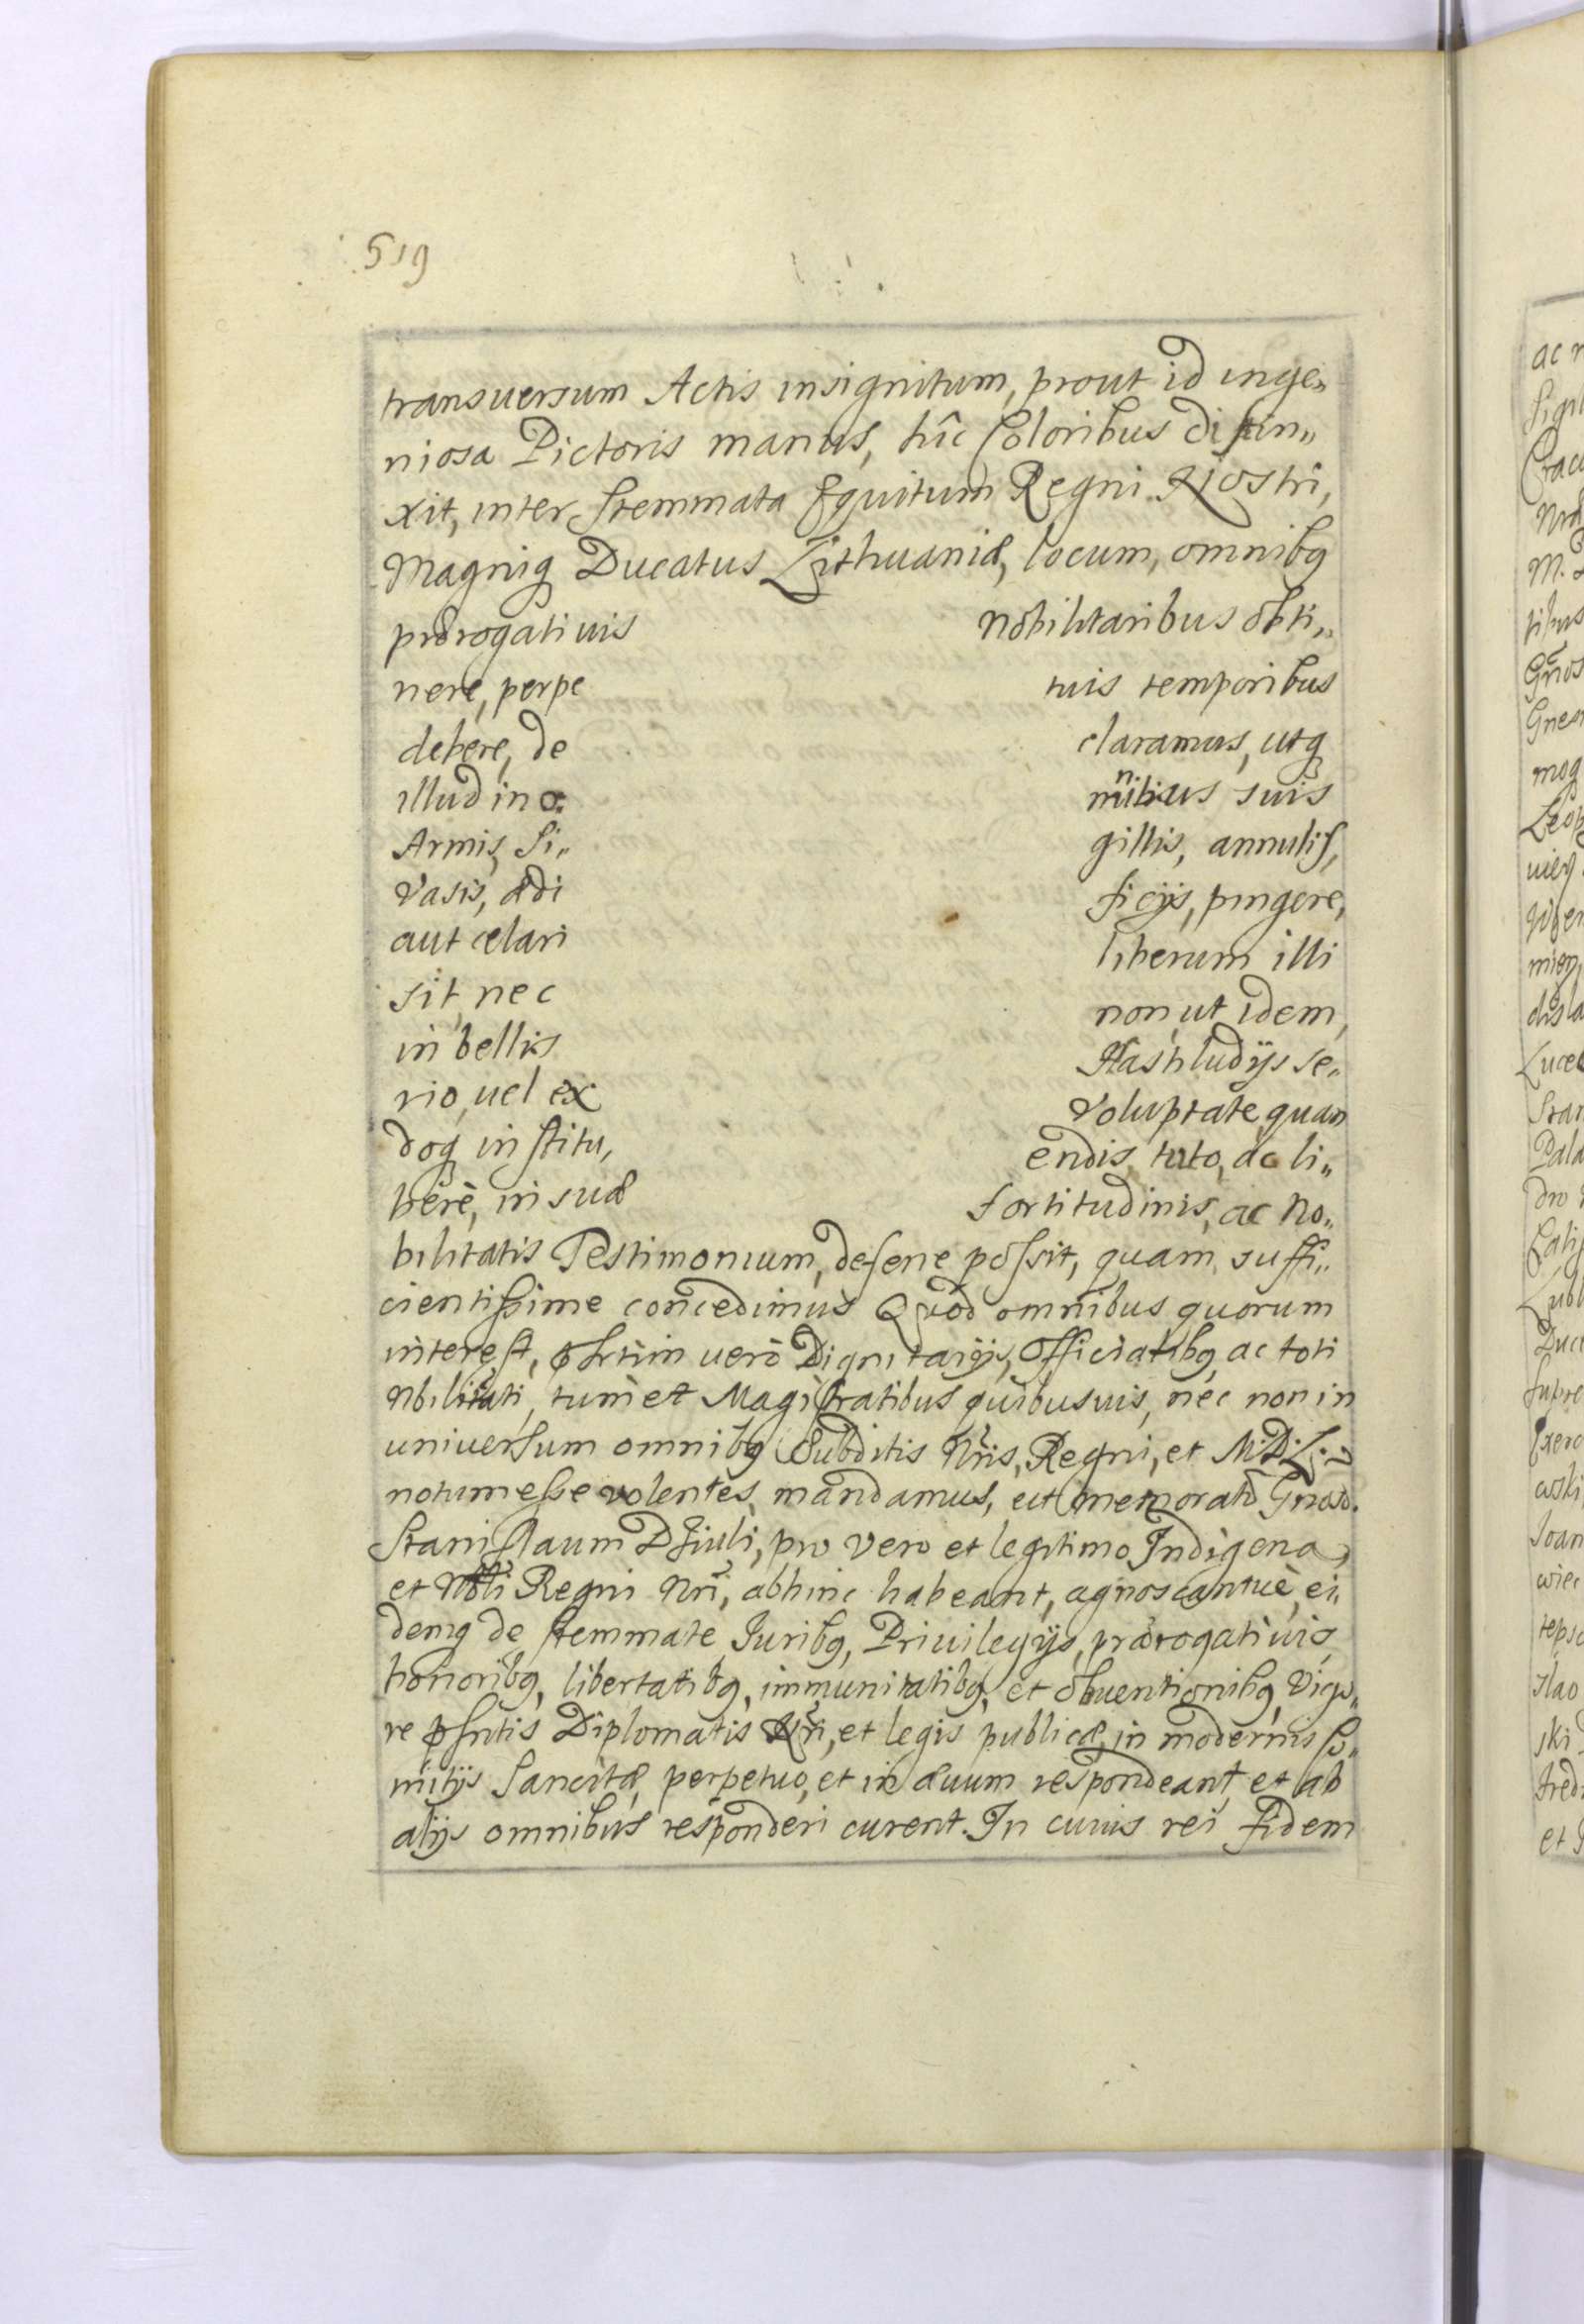 519
transuersum Actis insignitum, prout id inge„
niosa Pictoris manus, hîc Coloribus distin„
xit, inter Stemmata Equitum Regni Nostri,
Magniq Ducatus Lithuaniæ, locum, omnibq
prærogatiuis nobilitaribus obti„
nere, perpe tuis temporibus
debere, de claramus, utq
illud in o: mnibus suis
Armis, Si„ gillis, annulis,
Vasis, ædi ficijs, pingere,
aut celari liberum illi
sit, nec non, ut idem,
in bellis Hastiludijs se„
rio, uel ex voluptate quan
doq institu, endis, tuto, ac li„
berè, in suæ fortitudinis, ac No„
bilitatis Testimonium, deferre possit, quam suffi„
cientissime concedimus Quod omnibus quorum
interest, pñtim uerò Dignitarijs, Officiatibq ac toti
Nbilitati, tum et Magistratibus quibusuis, nec non in
uniuersum omnibq Subditis Nris, Regni, et M.D.L.
notum esse volentes, mandamus, ut memorato Gnoso.
Stanislaum Dziuli, pro vero et legitimo Indigena,
et Nbli Regni Nri, abhinc habeant, agnoscantue, ei„
demq de stemmate Iuribq, Priuilegijs, prærogatiuis,
honoribq, libertatibq, immunitatibq, et obuentionibq Vigo„
re pñtis Diplomatis Nri, et legis publicæ, in modernis Co„
mitijs Sancitæ, perpetuo, et in æuum respondeant, et ab
alijs omnibus responderi curent. In cuius rei fidem